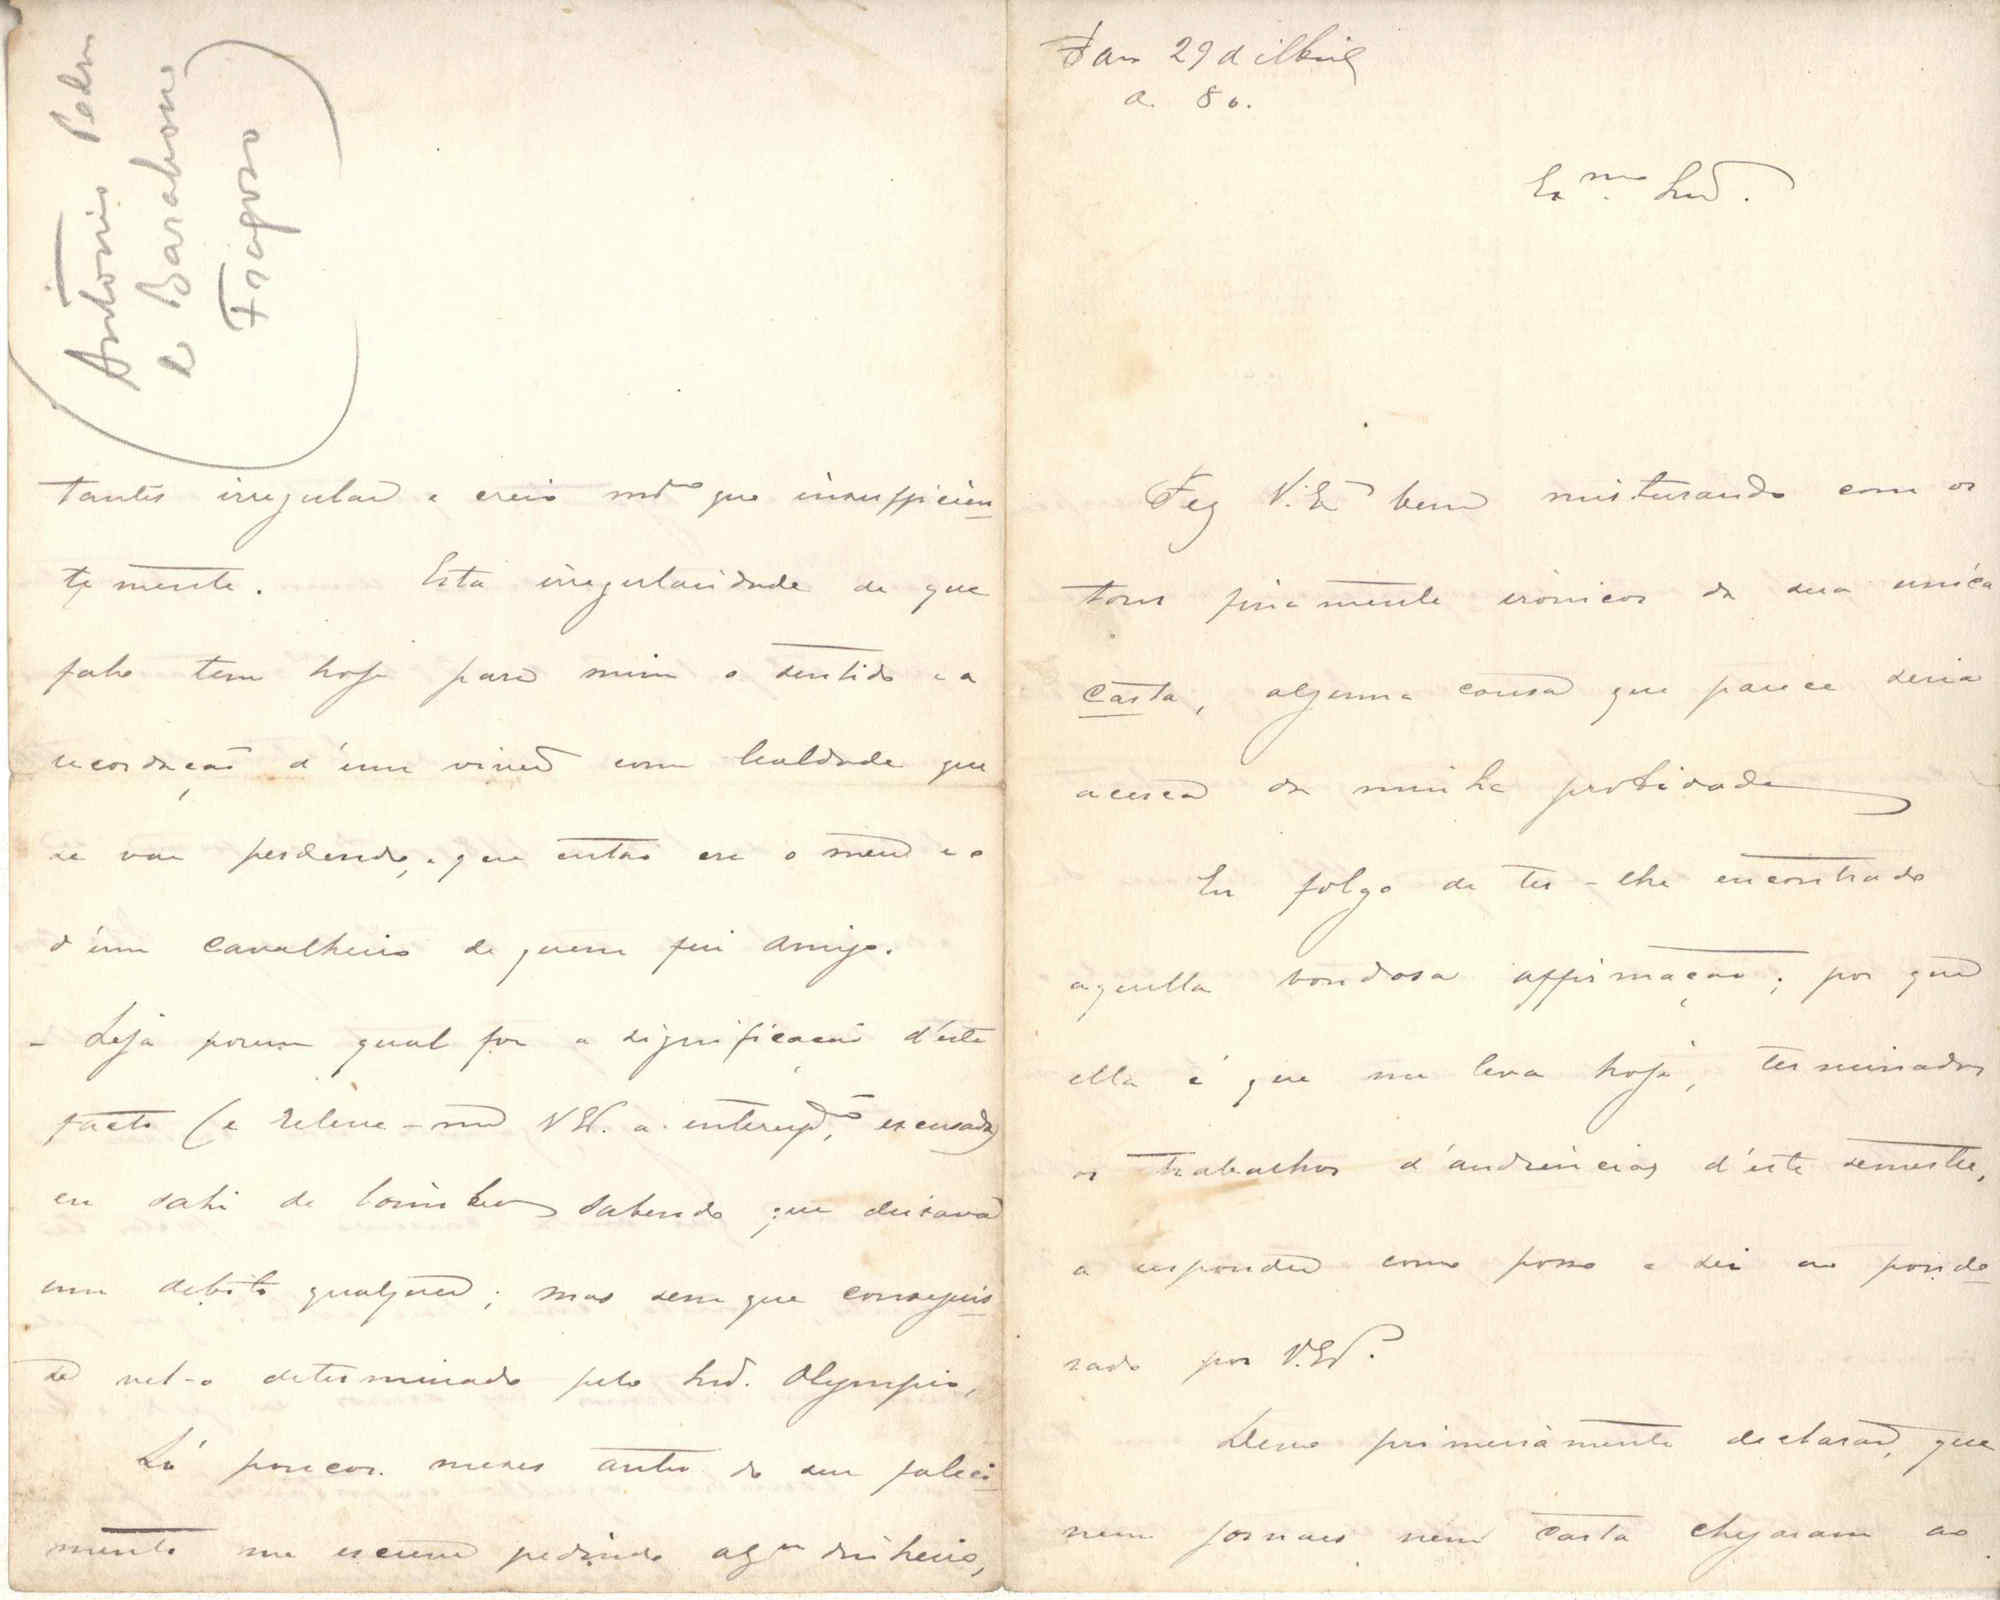 Faro 29 d'Abril
de 80.
Exmo Snr.
Fez V. Exª bem misturando com os
tons finamente ironicos da sua unica
carta, alguma cousa que parece seria
acerca da minha probidade
Eu folgo de ter-lhe encontrado
aquella bondosa affirmação; por que
ella é que me leva hoje, terminados
os trabalhos d'audiencias d'este semestre,
a responder como posso e sei ao ponde
rado por V. Exª.
Devo primeiramente declarar, que
nem jornaes nem carta chegaram ao
(António Pedro
de Barahona
Fragoso)
tantes irregular e creio mmo que insufficien
temente. Esta irregularidade de que
falo tem hoje para mim o sentido e a
recordação d'um viver com lealdade que
se vae perdendo, e que então era o meu e o
d'um cavalheiro de quem fui amigo.
- Seja porem qual for a significação d'este
facto (e releve-me V. Exª. a interrupção, escusada)
eu sahi de Coimbra sabendo que deixava
um debito qualquer; mas sem que conseguis
se vel-o determinado pelo Snr. Olympio,
Só poucos mezes antes do seu faleci
mento me escreveu pedindo algum dinheiro,